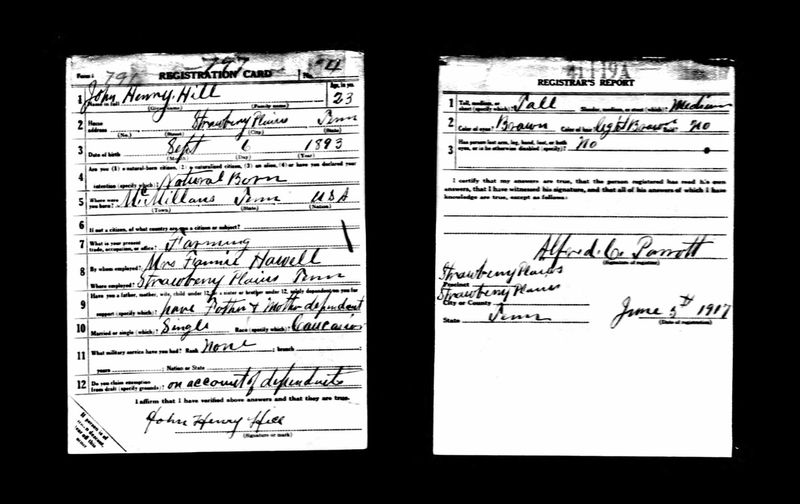 797
Form 1 791 REGISTRATION CARD No. 74
1 John Henry Hill Age, in yrs. 23
Name in full (Given name) (Family name)
2 Home address Strawberry Plains Tenn
(No.) (Street) (City) (State)
3 Date of birth Sept 6 1893
(Month) (Day) (Year)
4 Are you (1) a natural-born citizen, (2) a naturalized citizen, (3) an alien, (4) or have you declared your
intention (specify which)? Natural Born
5 Where were you born? McMillans Tenn USA
(Town) (State) (Nation)
6 If not a citizen, of what country are you a citizen or subject?
7 What is your present trade, occupation, or office? Farming
8 By whom employed? Mrs Fannie Howell
Where employed? Strawberry Plains Tenn
9 Have you a father, mother, wife, child under 12, or a sister or brother under 12, solely dependent on you for
support (specify which)? have Father & Mother dependent
10 Married or single (which)? Single Race (specify which)? Caucasion
11 What military service have you had? Rank None ; branch
years ; Nation or State
12 Do you claim exemption from draft (specify grounds)? on account of dependents
I affirm that I have verified above answers and that they are true.
John Henry Hill
(Signature or mark)
If person is of
African descent,
tear off this
corner
41 119A
REGISTRAR'S REPORT
1 Tall, medium, or short (specify which)? Tall Slender, medium, or stout (which)? Medium
2 Color of eyes? Brown Color of hair? light Brown Bald? No
3 Has person lost arm, leg, hand, foot, or both
eyes, or is he otherwise disabled (specify)? No
I certify that my answers are true, that the person registered has read his own
answers, that I have witnessed his signature, and that all of his answers of which I have
knowledge are true, except as follows:
Alfred C. Parrott
(Signature of registrar)
Strawberry Plains
Precinct
Strawberry Plains
City or County
State Tenn June 5th 1917
(Date of registration)